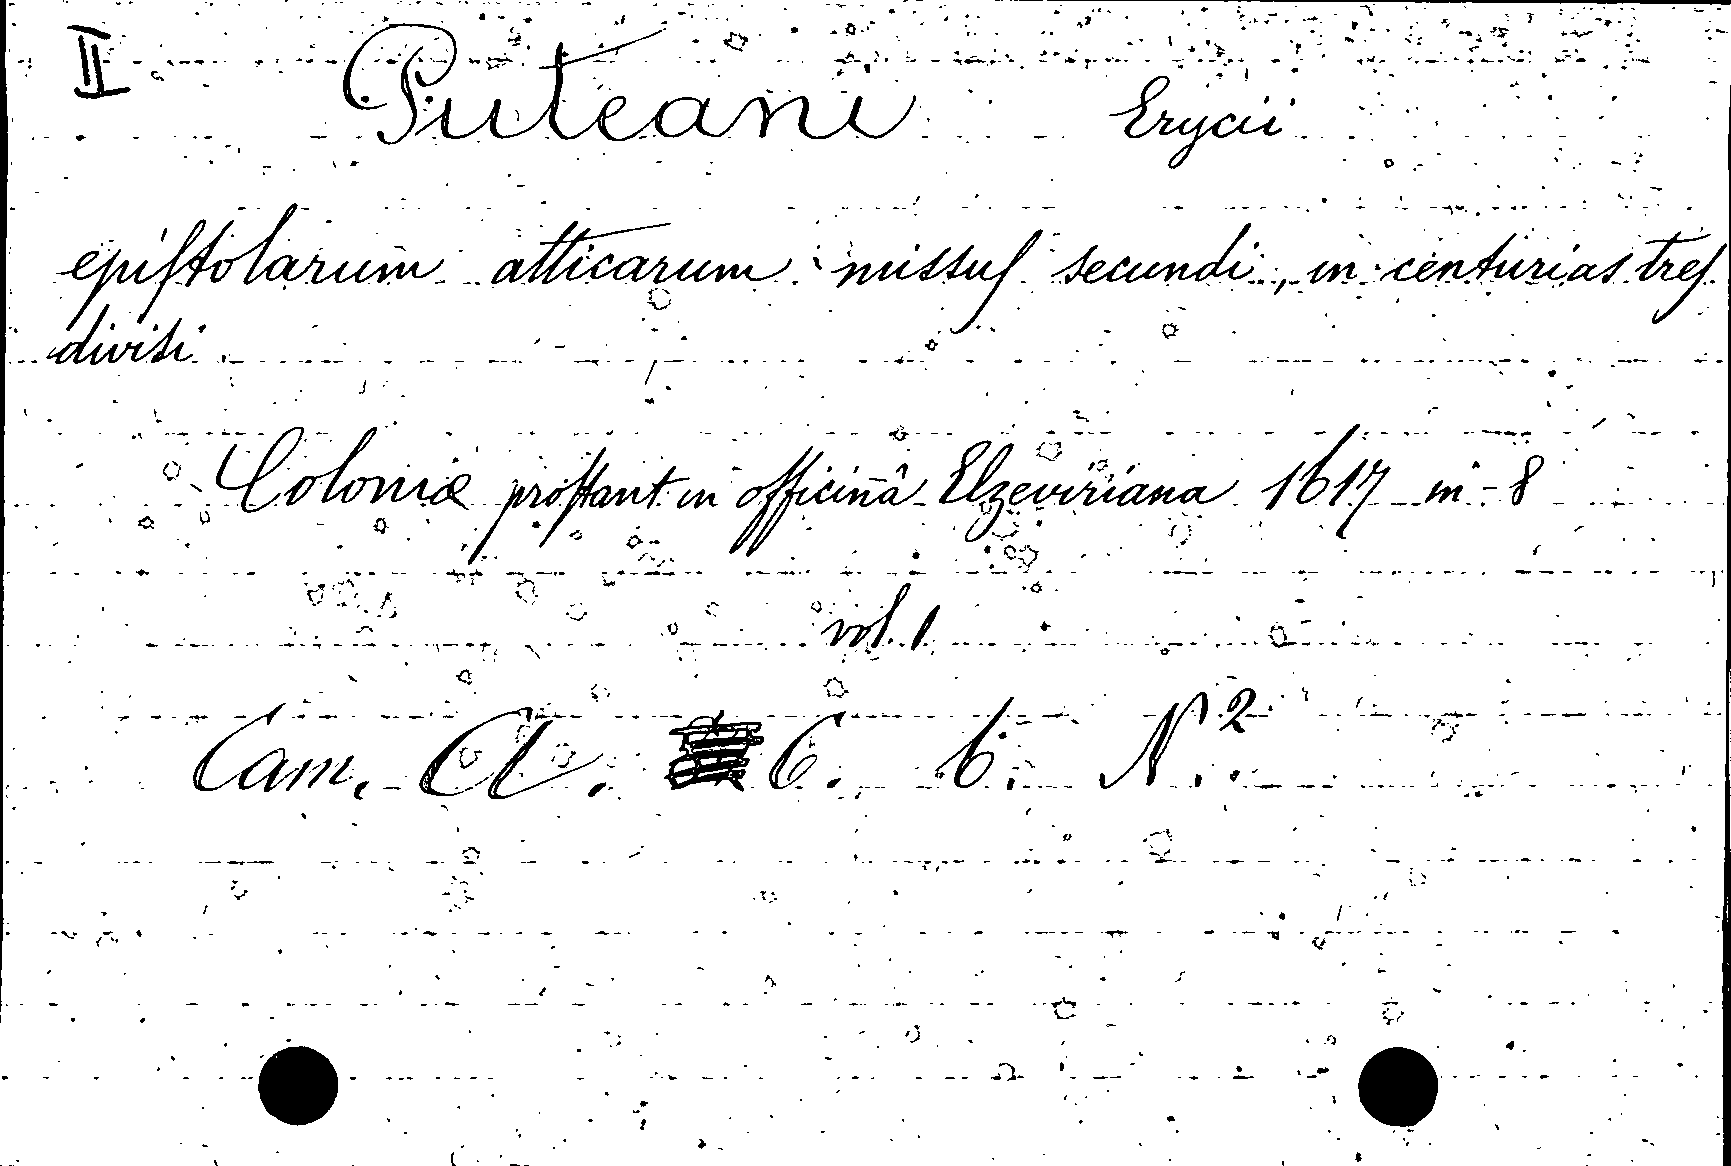 II Puteani Erycii
epistolarum atticarum missus secundi, in centurias tres
divisi
Coloniæ prostant in officinâ Elzeviriana 1617 in-8
vol. 1
Cam. A. C. b. N.2